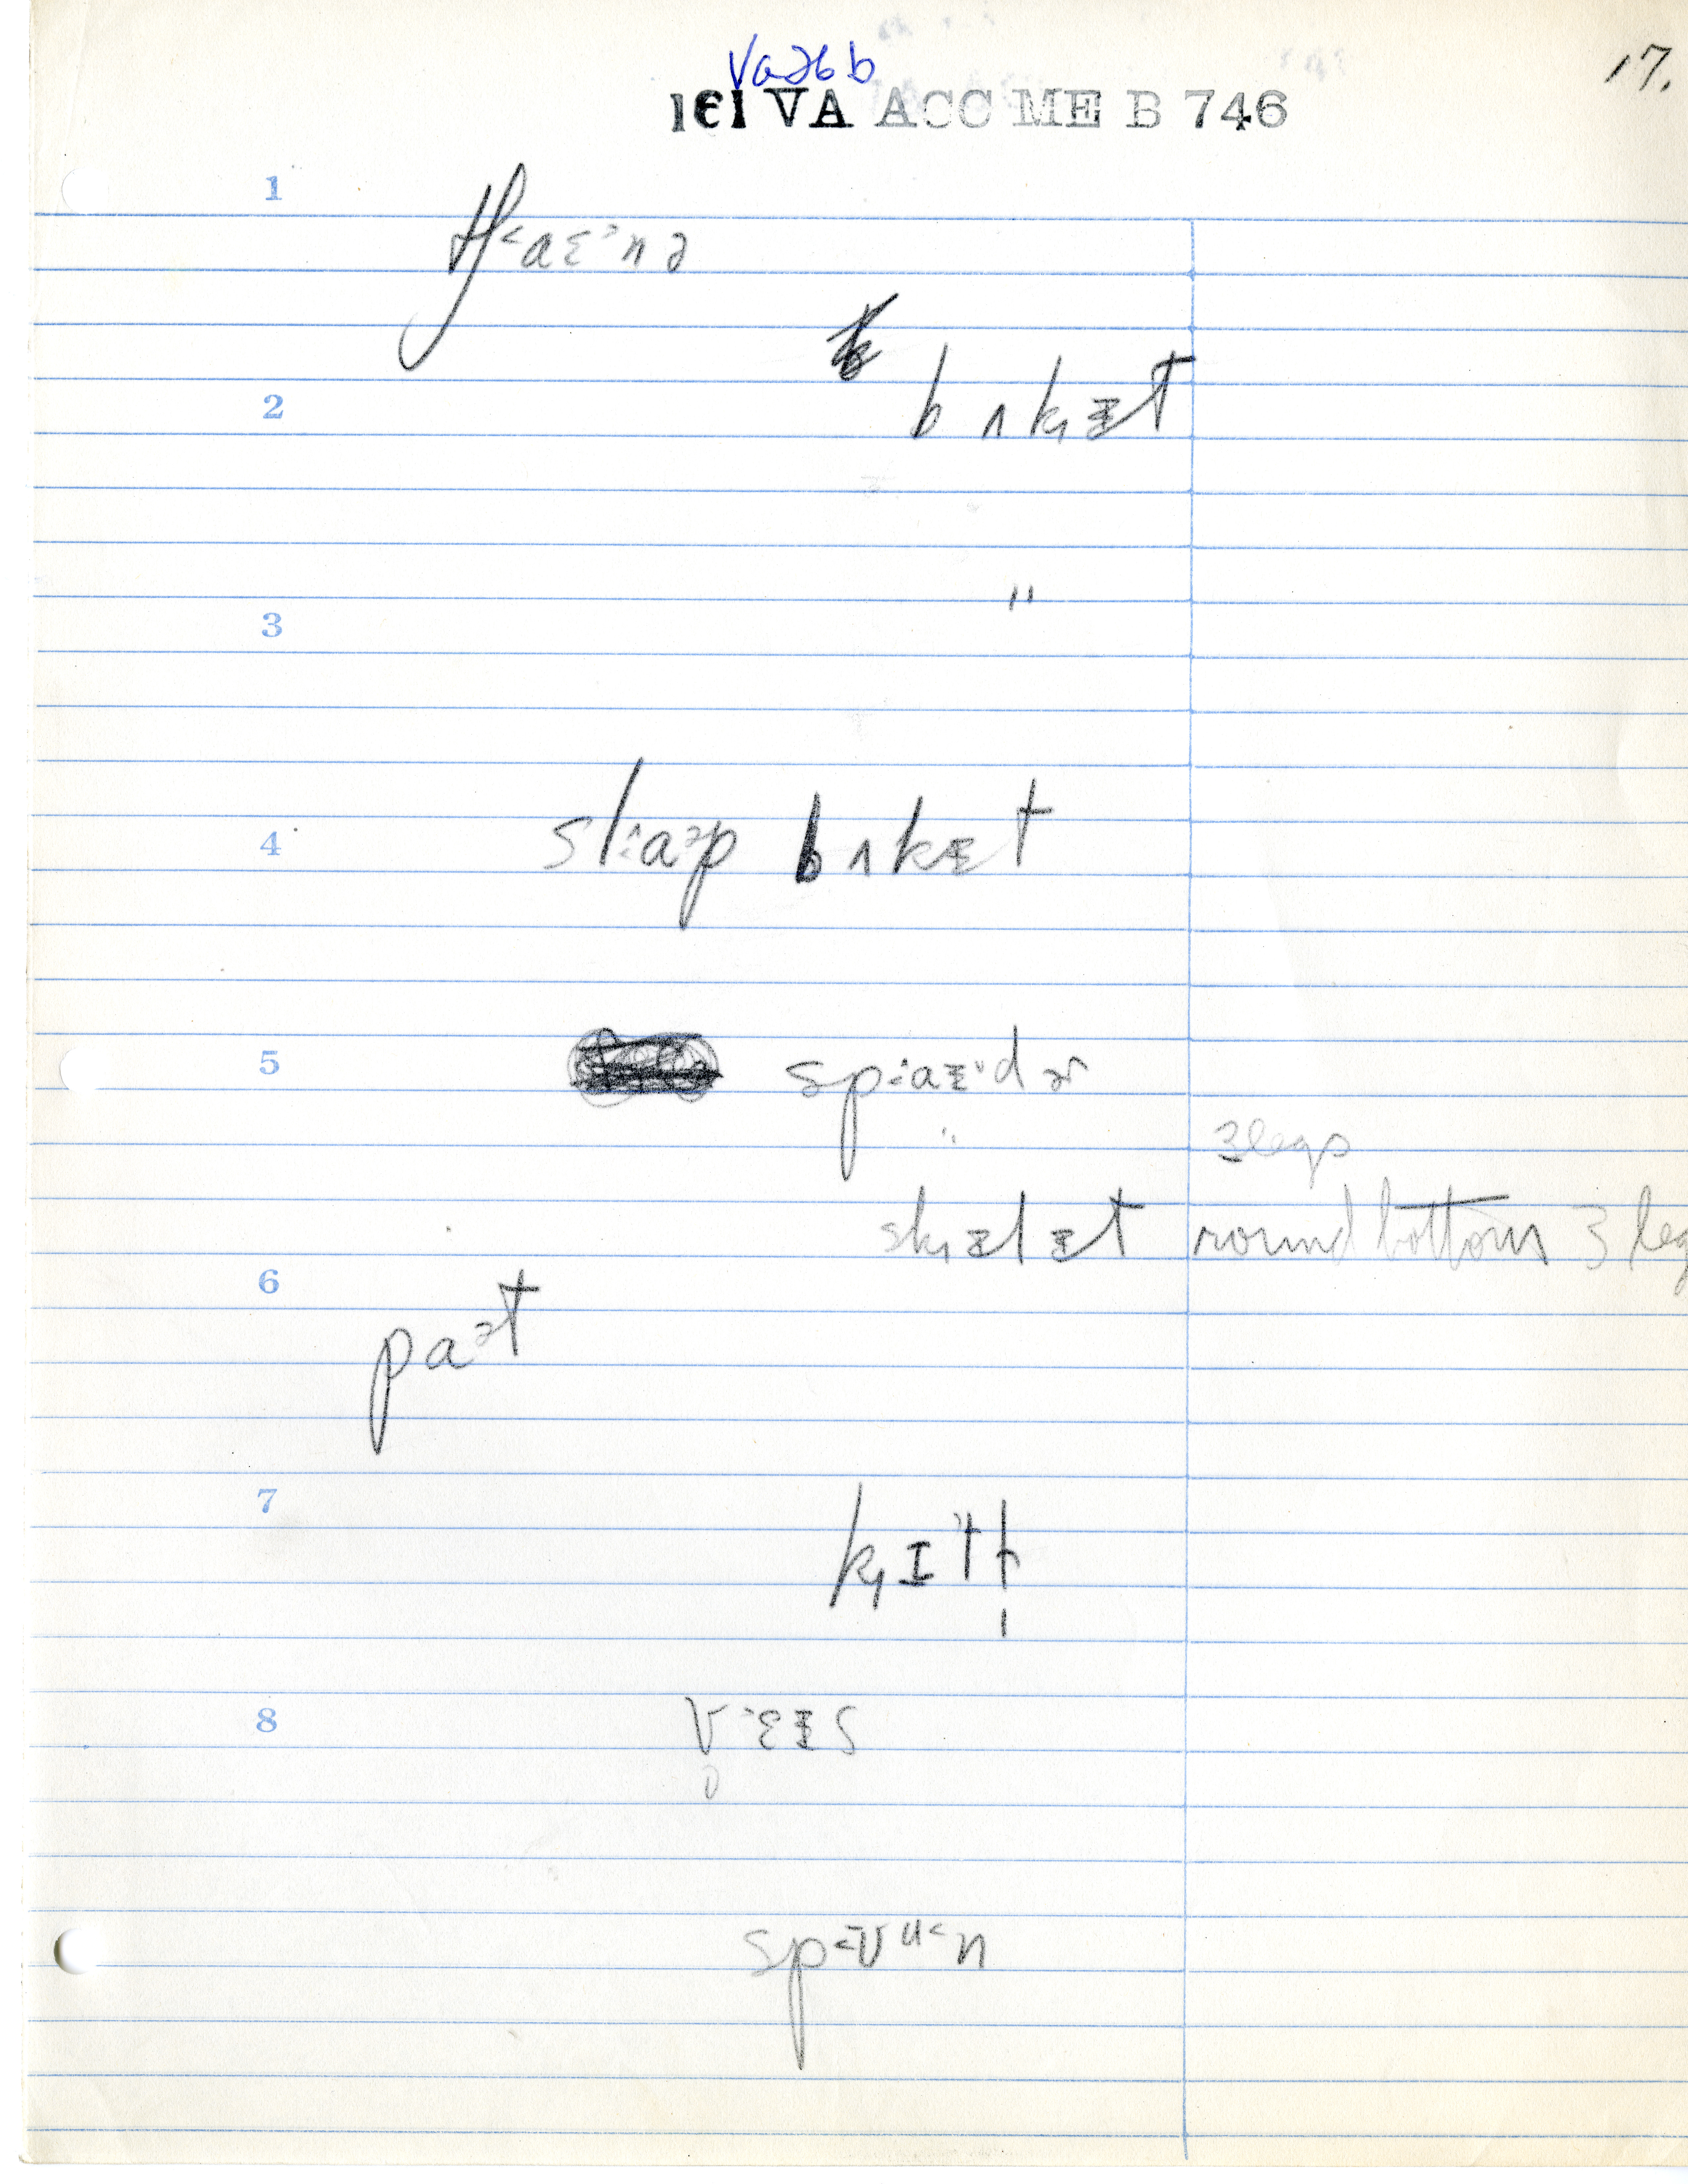 Va26b
17.
IEI VA ACC ME B 746
1
tʃ˂aɛ˃nə
2
bʌkᵻt
3
"
4
sl:a˃p bʌkᵻt
5
sp:aᵻ˅dɚ
"
3 legs
skᵻlᵻt round bottom 3 leg
6
paət
7
kɪtl
8
spʊu˂n